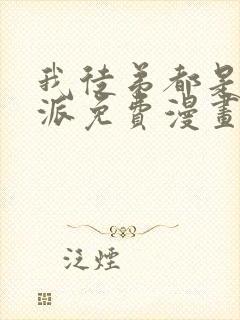 我徒弟都是
派免費漫畫
泛煙